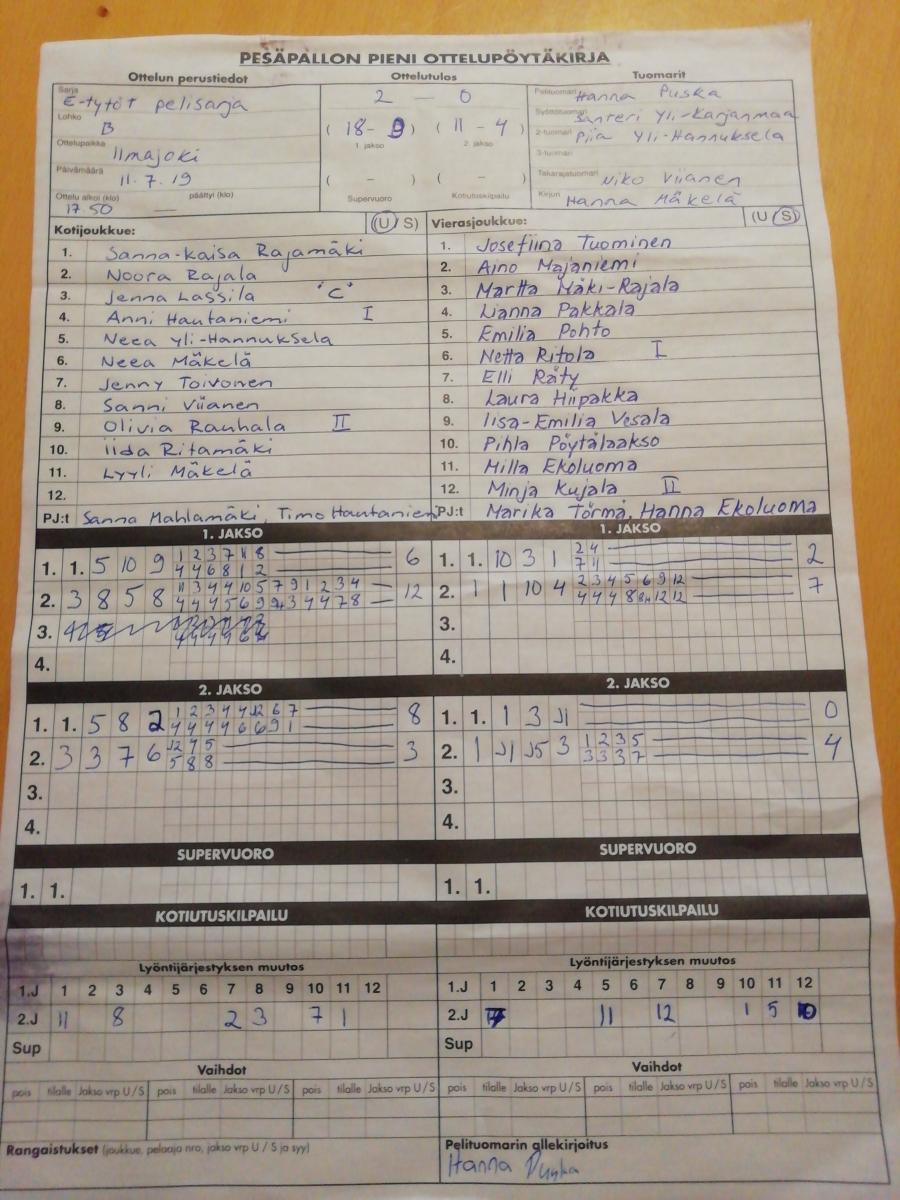 PESÄPALLON PIENI OTTELUPÖYTÄKIRJA
Ottelun perustiedot
Sarja E-tytöt pelisarja
Lohko B
Ottelupaikka Ilmajoki
Päivämäärä 11.7.19
Ottelu alkoi (klo) 17.50 päättyi (klo) —
Ottelutulos
2 — 0
(18 - 9) (11 - 4)
1. jakso 2. jakso
( - ) ( - )
Supervuoro Kotiutuskilpailu
Tuomarit
Pelituomari Hanna Puska
Syöttötuomari Santeri Yli-Karjanmaa
2-tuomari Piia Yli-Hannuksela
3-tuomari
Takarajatuomari Niko Viianen
Kirjuri Hanna Mäkelä
Kotijoukkue: (U/S)
1. Sanna-Kaisa Rajamäki
2. Noora Rajala
3. Jenna Lassila "C"
4. Anni Hautaniemi I
5. Neea Yli-Hannuksela
6. Neea Mäkelä
7. Jenny Toivonen
8. Sanni Viianen
9. Olivia Rauhala II
10. Iida Ritamäki
11. Lyyli Mäkelä
12.
PJ:t Sanna Mahlamäki, Timo Hautaniemi
Vierasjoukkue: (U/S)
1. Josefiina Tuominen
2. Aino Majaniemi
3. Martta Mäki-Rajala
4. Lianna Pakkala
5. Emilia Pohto
6. Netta Ritola I
7. Elli Räty
8. Laura Hiipakka
9. Iisa-Emilia Vesala
10. Pihla Pöytälaakso
11. Milla Ekoluoma
12. Minja Kujala II
PJ:t Marika Törmä, Hanna Ekoluoma
1. JAKSO
1. 1. 5 10 9 1 2 3 7 11 8 6
4 4 6 8 1 2
2. 3 8 5 8 11 3 4 4 10 5 7 9 1 2 3 4 12
4 4 4 5 6 9 9 3 4 4 7 8
3.
4.
1. JAKSO
1. 1. 10 3 1 2 4 2
7 11
2. 1 1 10 4 2 3 4 5 6 9 12 7
4 4 4 8 12 12
3.
4.
2. JAKSO
1. 1. 5 8 2 1 2 3 4 4 12 6 7 8
4 4 4 4 6 6 9 1
2. 3 3 7 6 12 4 5 3
5 8 8
3.
4.
2. JAKSO
1. 1. 1 3 11 0
2. 1 11 5 3 1 2 3 5 4
3 3 3 7
3.
4.
SUPERVUORO
1. 1.
SUPERVUORO
1. 1.
KOTIUTUSKILPAILU
KOTIUTUSKILPAILU
Lyöntijärjestyksen muutos
1.J 1 2 3 4 5 6 7 8 9 10 11 12
2.J 11 8 2 3 7 1
Sup
Lyöntijärjestyksen muutos
1.J 1 2 3 4 5 6 7 8 9 10 11 12
2.J 11 12 1 5 10
Sup
Vaihdot
pois tilalle Jakso vrp U/S pois tilalle Jakso vrp U/S pois tilalle Jakso vrp U/S
Vaihdot
pois tilalle Jakso vrp U/S pois tilalle Jakso vrp U/S pois tilalle Jakso vrp U/S
Rangaistukset (joukkue, pelaaja nro, jakso vrp U / S ja syy)
Pelituomarin allekirjoitus
Hanna Puska